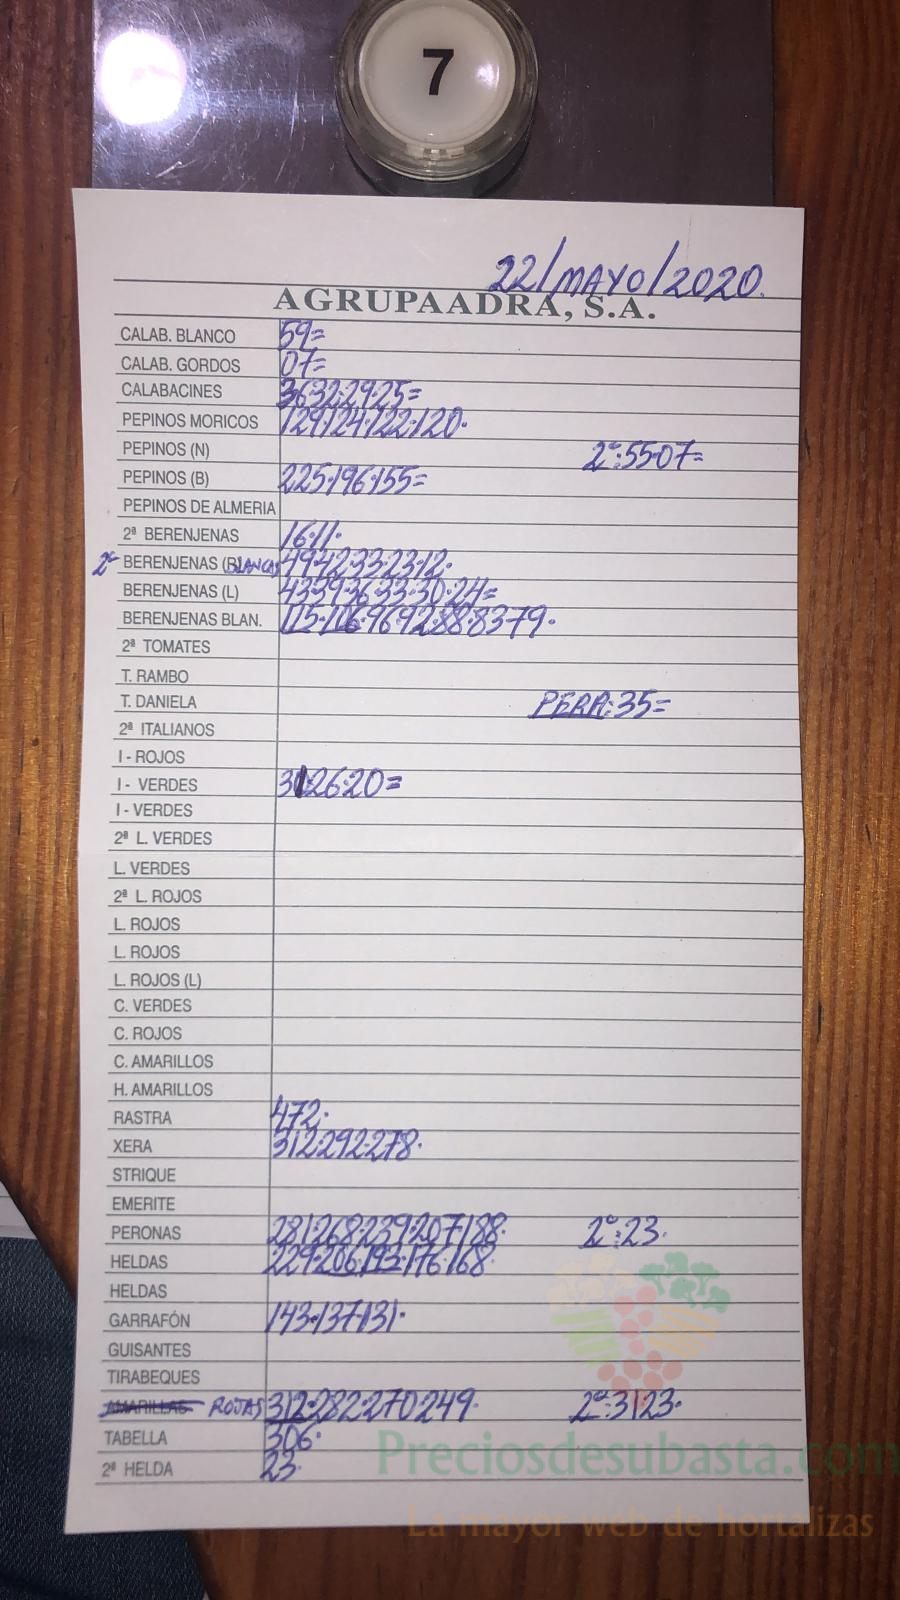 7
22/MAYO/2020.
AGRUPAADRA, S.A.
CALAB. BLANCO 59=
CALAB. GORDOS 07=
CALABACINES 36·32·29·25=
PEPINOS MORICOS 129·124·122·120·
PEPINOS (N) 2ª:55·07=
PEPINOS (B) 225·196·155=
PEPINOS DE ALMERIA
2ª BERENJENAS 16·11·
2ª BERENJENAS (BLANCAS 49·42·33·23·12·
BERENJENAS (L) 43·39·36·33·30·24=
BERENJENAS BLAN. 115·106·96·92·88·83·79·
2ª TOMATES
T. RAMBO
T. DANIELA PERA:35=
2ª ITALIANOS
I - ROJOS
I - VERDES 31·26·20=
I - VERDES
2ª L. VERDES
L. VERDES
2ª L. ROJOS
L. ROJOS
L. ROJOS
L. ROJOS (L)
C. VERDES
C. ROJOS
C. AMARILLOS
H. AMARILLOS
RASTRA 472·
XERA 312·292·278·
STRIQUE
EMERITE
PERONAS 281·268·239·207·188· 2ª:23·
HELDAS 229·206·193·176·168·
HELDAS
GARRAFÓN 143·137·131·
GUISANTES
TIRABEQUES
AMARILLAS ROJAS 312·282·270·249· 2ª:31·23·
TABELLA 306·
2ª HELDA 23·
Preciosdesubasta.com
La mayor web de hortalizas